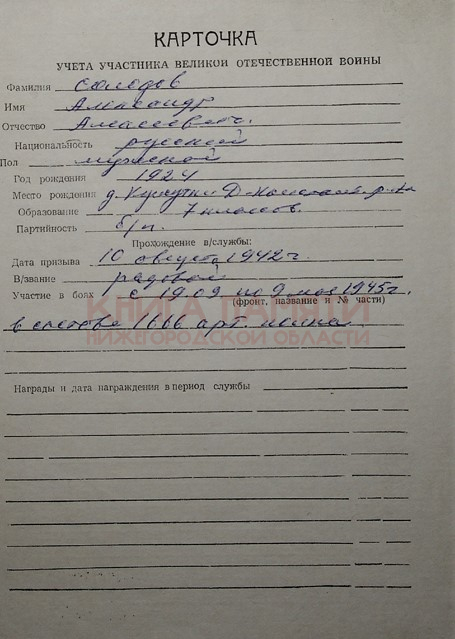 КАРТОЧКА
УЧЕТА УЧАСТНИКА ВЕЛИКОЙ ОТЕЧЕСТВЕННОЙ ВОЙНЫ
Фамилия Солодов
Имя Александр
Отчество Алексеевич.
Национальность русский
Пол мужской
Год рождения 1924
Место рождения д. Д-Константи р-на
Образование 7 классов.
Партийность б/п.
Прохождение в/службы:
Дата призыва 10 августа 1942 г.
В/звание рядовой
Участие в боях с 19.09 по 9 мая 1945 г.
(фронт, название и № части)
в составе 1666 арт. полка
КНИГА ПАМЯТИ
НИЖЕГОРОДСКОЙ ОБЛАСТИ
Награды и дата награждения в период службы